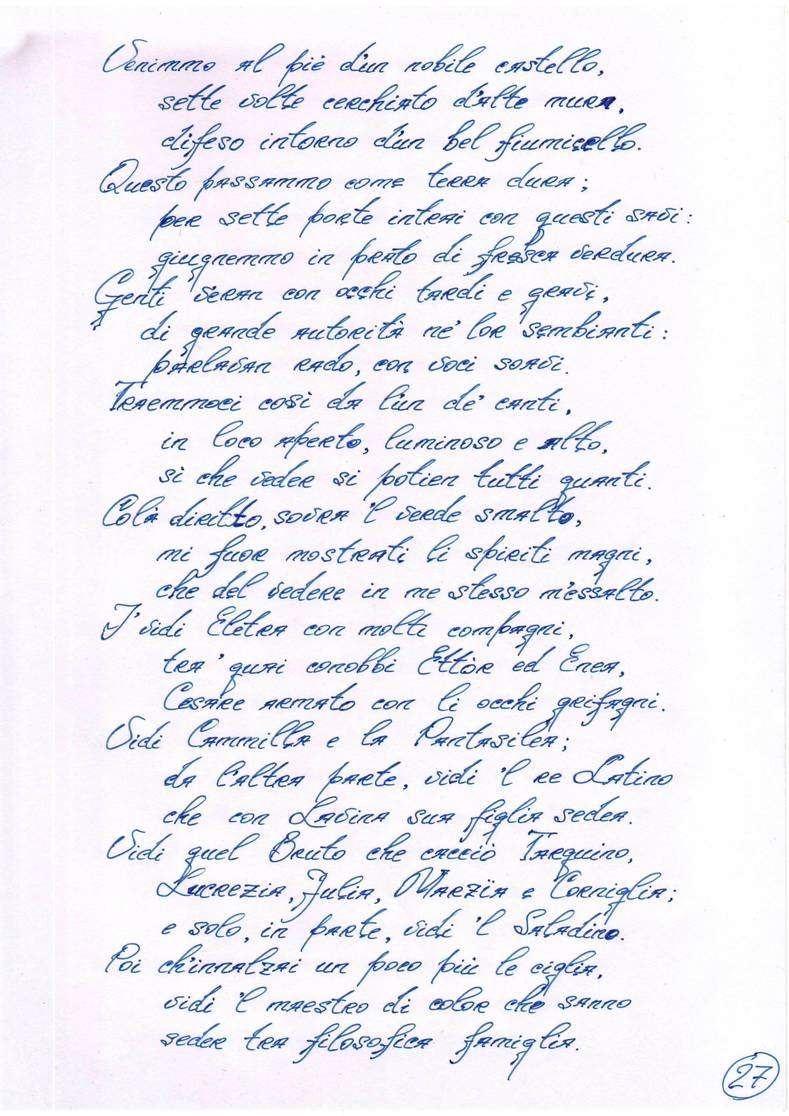 Venimmo al piè d'un nobile castello,
sette volte cerchiato d'alte mura,
difeso intorno d'un bel fiumicello.
Questo passammo come terra dura;
per sette porte intrai con questi savi:
giugnemmo in prato di fresca verdura.
Genti v'eran con occhi tardi e gravi,
di grande autorità ne' lor sembianti:
parlavan rado, con voci soavi.
Traemmoci così da l'un de' canti,
in loco aperto, luminoso e alto,
sì che veder si potien tutti quanti.
Colà diritto, sovra 'l verde smalto,
mi fuor mostrati li spiriti magni,
che del vedere in me stesso m'essalto.
I' vidi Eletra con molti compagni,
tra' quai conobbi Ettòr ed Enea,
Cesare armato con li occhi grifagni.
Vidi Cammilla e la Pantasilea;
da l'altra parte, vidi 'l re Latino
che con Lavina sua figlia sedea.
Vidi quel Bruto che cacciò Tarquino,
Lucrezia, Julia, Marzïa e Corniglia;
e solo, in parte, vidi 'l Saladino.
Poi ch'innalzai un poco più le ciglia,
vidi 'l maestro di color che sanno
seder tra filosofica famiglia.
27